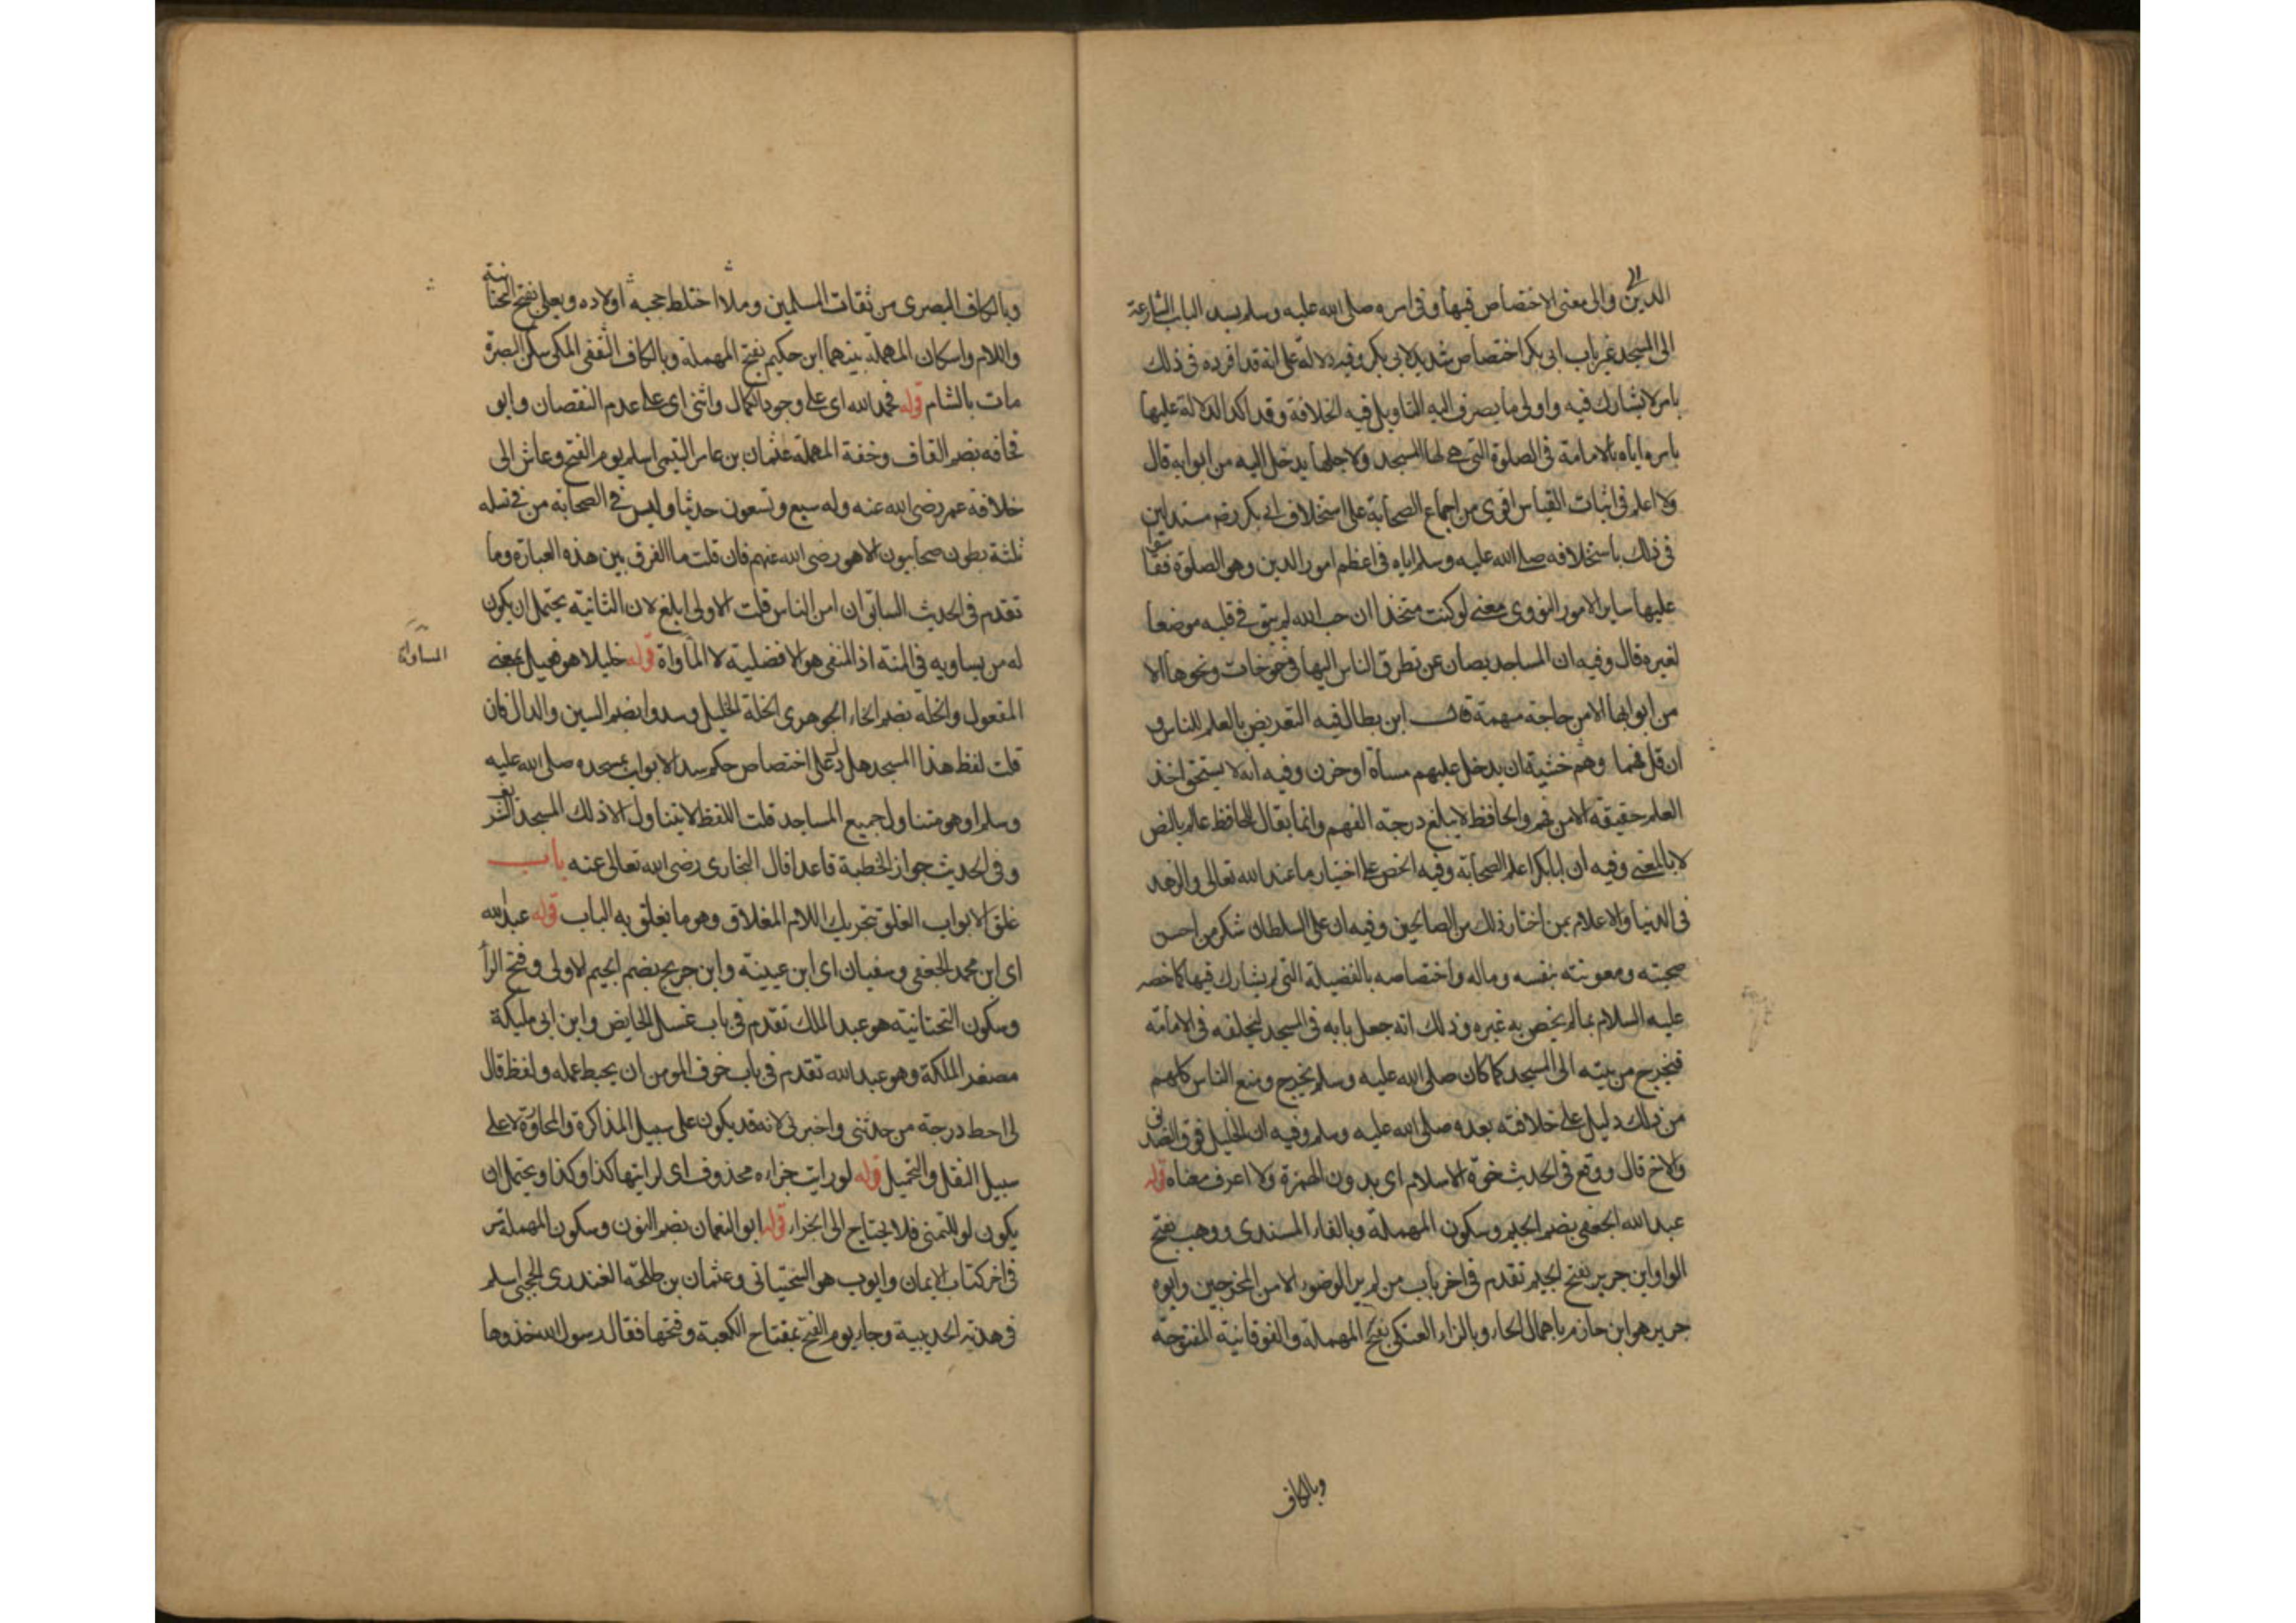 الدين والى معنى الاختصاص فيها وفى امره صلى الله عليه وسلم بسد الباب الشارعة
الى المسجد غير باب ابى بكر اختصاص شديد لابى بكر وفيه دلالة على انه قد افرده فى ذلك
بامر لا يشارك فيه واولى ما يصرف اليه التاويل فيه الخلافة وقد اكد الدلالة عليها
بامره اياه بالامامة فى الصلوة التى هى لها المسجد ولاجلها يدخل اليه من ابوابه قال
ولا اعلم فى اثبات القياس اقوى من اجماع الصحابة على استخلاف ابى بكر رضه مستدلين
فى ذلك باستخلافه صلى الله عليه وسلم اياه فى اعظم امور الدين وهو الصلوة فقاسوا
عليها ساير الامور النووى معنى لو كنت متخذا ان حب الله لم يبق فى قلبه موضعا
لغيره قال وفيه ان المساجد يصان عن تطرق الناس اليها فى خوخات ونحوها الا
من ابوابها الا من حاجة مهمة قال ابن بطال فيه التعريض بالعلم للناس و
ان قل فهما وهم خشية ان يدخل عليهم مساة او حزن وفيه انه لا يستحق اخذ
العلم حقيقة الا من فهم والحافظ لا يبلغ درجة الفهم وانما يقال للحافظ عالم بالنص
لا بالمعنى وفيه ان ابا بكر اعلم الصحابة وفيه الحض على اختيار ما عند الله تعالى والزهد
فى الدنيا والاعلام بمن اختار ذلك من الصالحين وفيه ان على السلطان شكر من احسن
صحبته ومعونته بنفسه وماله واختصاصه بالفضيلة التى لم يشارك فيها كما خصه
عليه السلام بما لم يخص به غيره وذلك انه جعل بابه فى المسجد ليخلفه فى الامامة
فيخرج من بيته الى المسجد كما كان صلى الله عليه وسلم يخرج ومنع الناس كلهم
من ذلك دليل على خلافته بعده صلى الله عليه وسلم وفيه ان الخليل فوق الصديق
والاخ قال ووقع فى الحديث خوة الاسلام اى بدون الهمزة ولا اعرف معناه قوله
عبد الله الجعفى بضم الجيم وسكون المهملة وبالفاء المسندى ووهب بفتح
الواو ابن جرير بفتح الجيم تقدم فى اخر باب من لم ير الوضوء الا من المخرجين وابوه
جرير هو ابن حازم باهمال الحاء وبالزاء العتكى بفتح المهملة والفوقانية المفتوحة
وبالكاف
وبالكاف البصرى من ثقات المسلمين ولما اختلط حجبه اولاده ويعلى بفتح التحتانية
واللام واسكان المهملة بينهما ابن حكيم بفتح المهملة وبالكاف الثقفى المكى سكن البصرة
مات بالشام قوله فحمد الله اى على وجود الكمال واثنى اى على عدم النقصان وابو
قحافه بضم القاف وخفة المهملة عثمان بن عامر التيمى اسلم يوم الفتح وعاش الى
خلافة عمر رضى الله عنه وله سبع وتسعون حديثا وليس فى الصحابة من فى نسله
ثلثة بطون صحابيون الا هو رضى الله عنهم فان قلت ما الفرق بين هذه العبارة وما
تقدم فى الحديث السابق ان امن الناس قلت الاولى ابلغ لان الثانية يحتمل ان يكون
له من يساويه فى المنة اذ المنفى هو الافضلية لا الماواة قوله خليلا هو فعيل بمعنى
المساواة
المفعول والخلة بضم الخاء الجوهرى الخلة الخليل وسدوا بضم السين والدال فان
قلت لفظ هذا المسجد هل يدل على اختصاص حكم سد الابواب بمسجده صلى الله عليه
وسلم او هو متناول جميع المساجد قلت اللفظ لا يتناول الا ذلك المسجد الشريف
وفى الحديث جواز الخطبة قاعدا قال البخارى رضى الله تعالى عنه باب
غلق الابواب الغلق بتحريك اللام المغلاق وهو ما يغلق به الباب قوله عبد الله
اى ابن محمد الجعفى وسفيان اى ابن عيينة وابن جريج بضم الجيم الاولى وفتح الراء
وسكون التحتانية هو عبد الملك تقدم فى باب غسل الحايض وابن ابى مليكة
مصغر الملكة وهو عبد الله تقدم فى باب خوف المومن ان يحبط عمله ولفظ قال
لى احط درجة من حدثنى واخبرنى لانه قد يكون على سبيل المذاكرة والمحاورة لا على
سبيل النقل والتحميل قوله لو رايت جزاءه محذوف اى لرايتها كذا وكذا ويحتمل ان
يكون لو للتمنى فلا يحتاج الى الجزاء قوله ابو النعمان بضم النون وسكون المهملة مر
فى اخر كتاب الايمان وايوب هو السختيانى وعثمان بن طلحة العبدرى الحجبى اسلم
فى هدنة الحديبية وجاء يوم الفتح بمفتاح الكعبة وفتحها فقال رسول الله خذوها